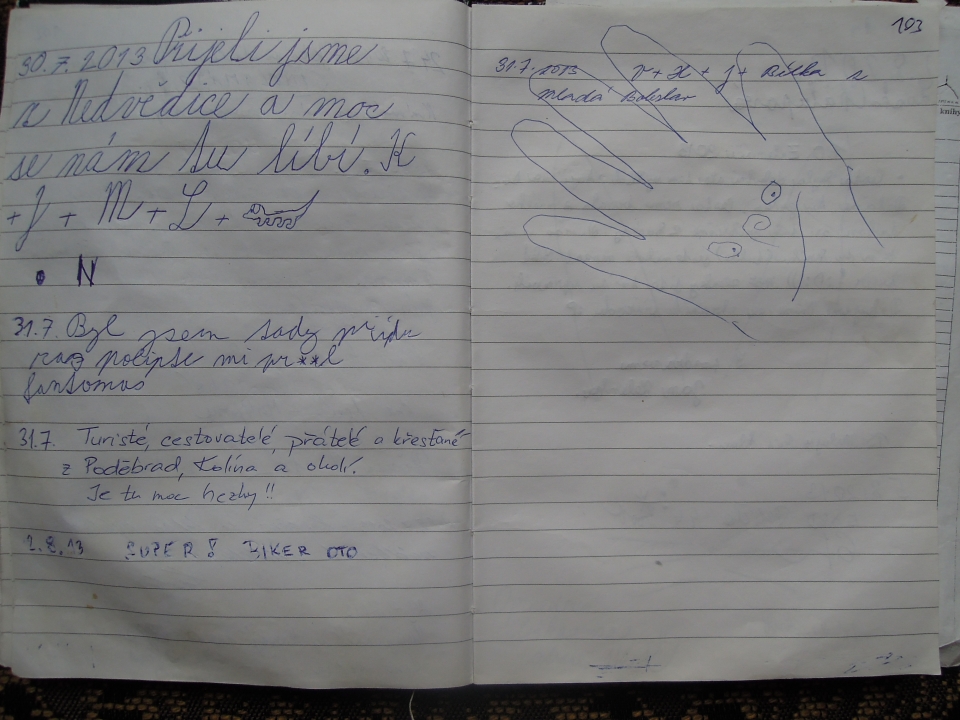 30.7.2013 Přijeli jsme
z Nedvědice a moc
se nám tu líbí. K
+ J + M + L +
• N
31.7. Byl jsem tady
mi pr**l
fantomas
31.7. Turisté, cestovatelé, přátelé a křesťané
z Poděbrad, Kolína a okolí.
Je tu moc hezky!!
2.8.13 SUPER! BIKER OTO
103
31.7. 2013 V + H + J + Bělka z
Mladá Boleslav
knihy